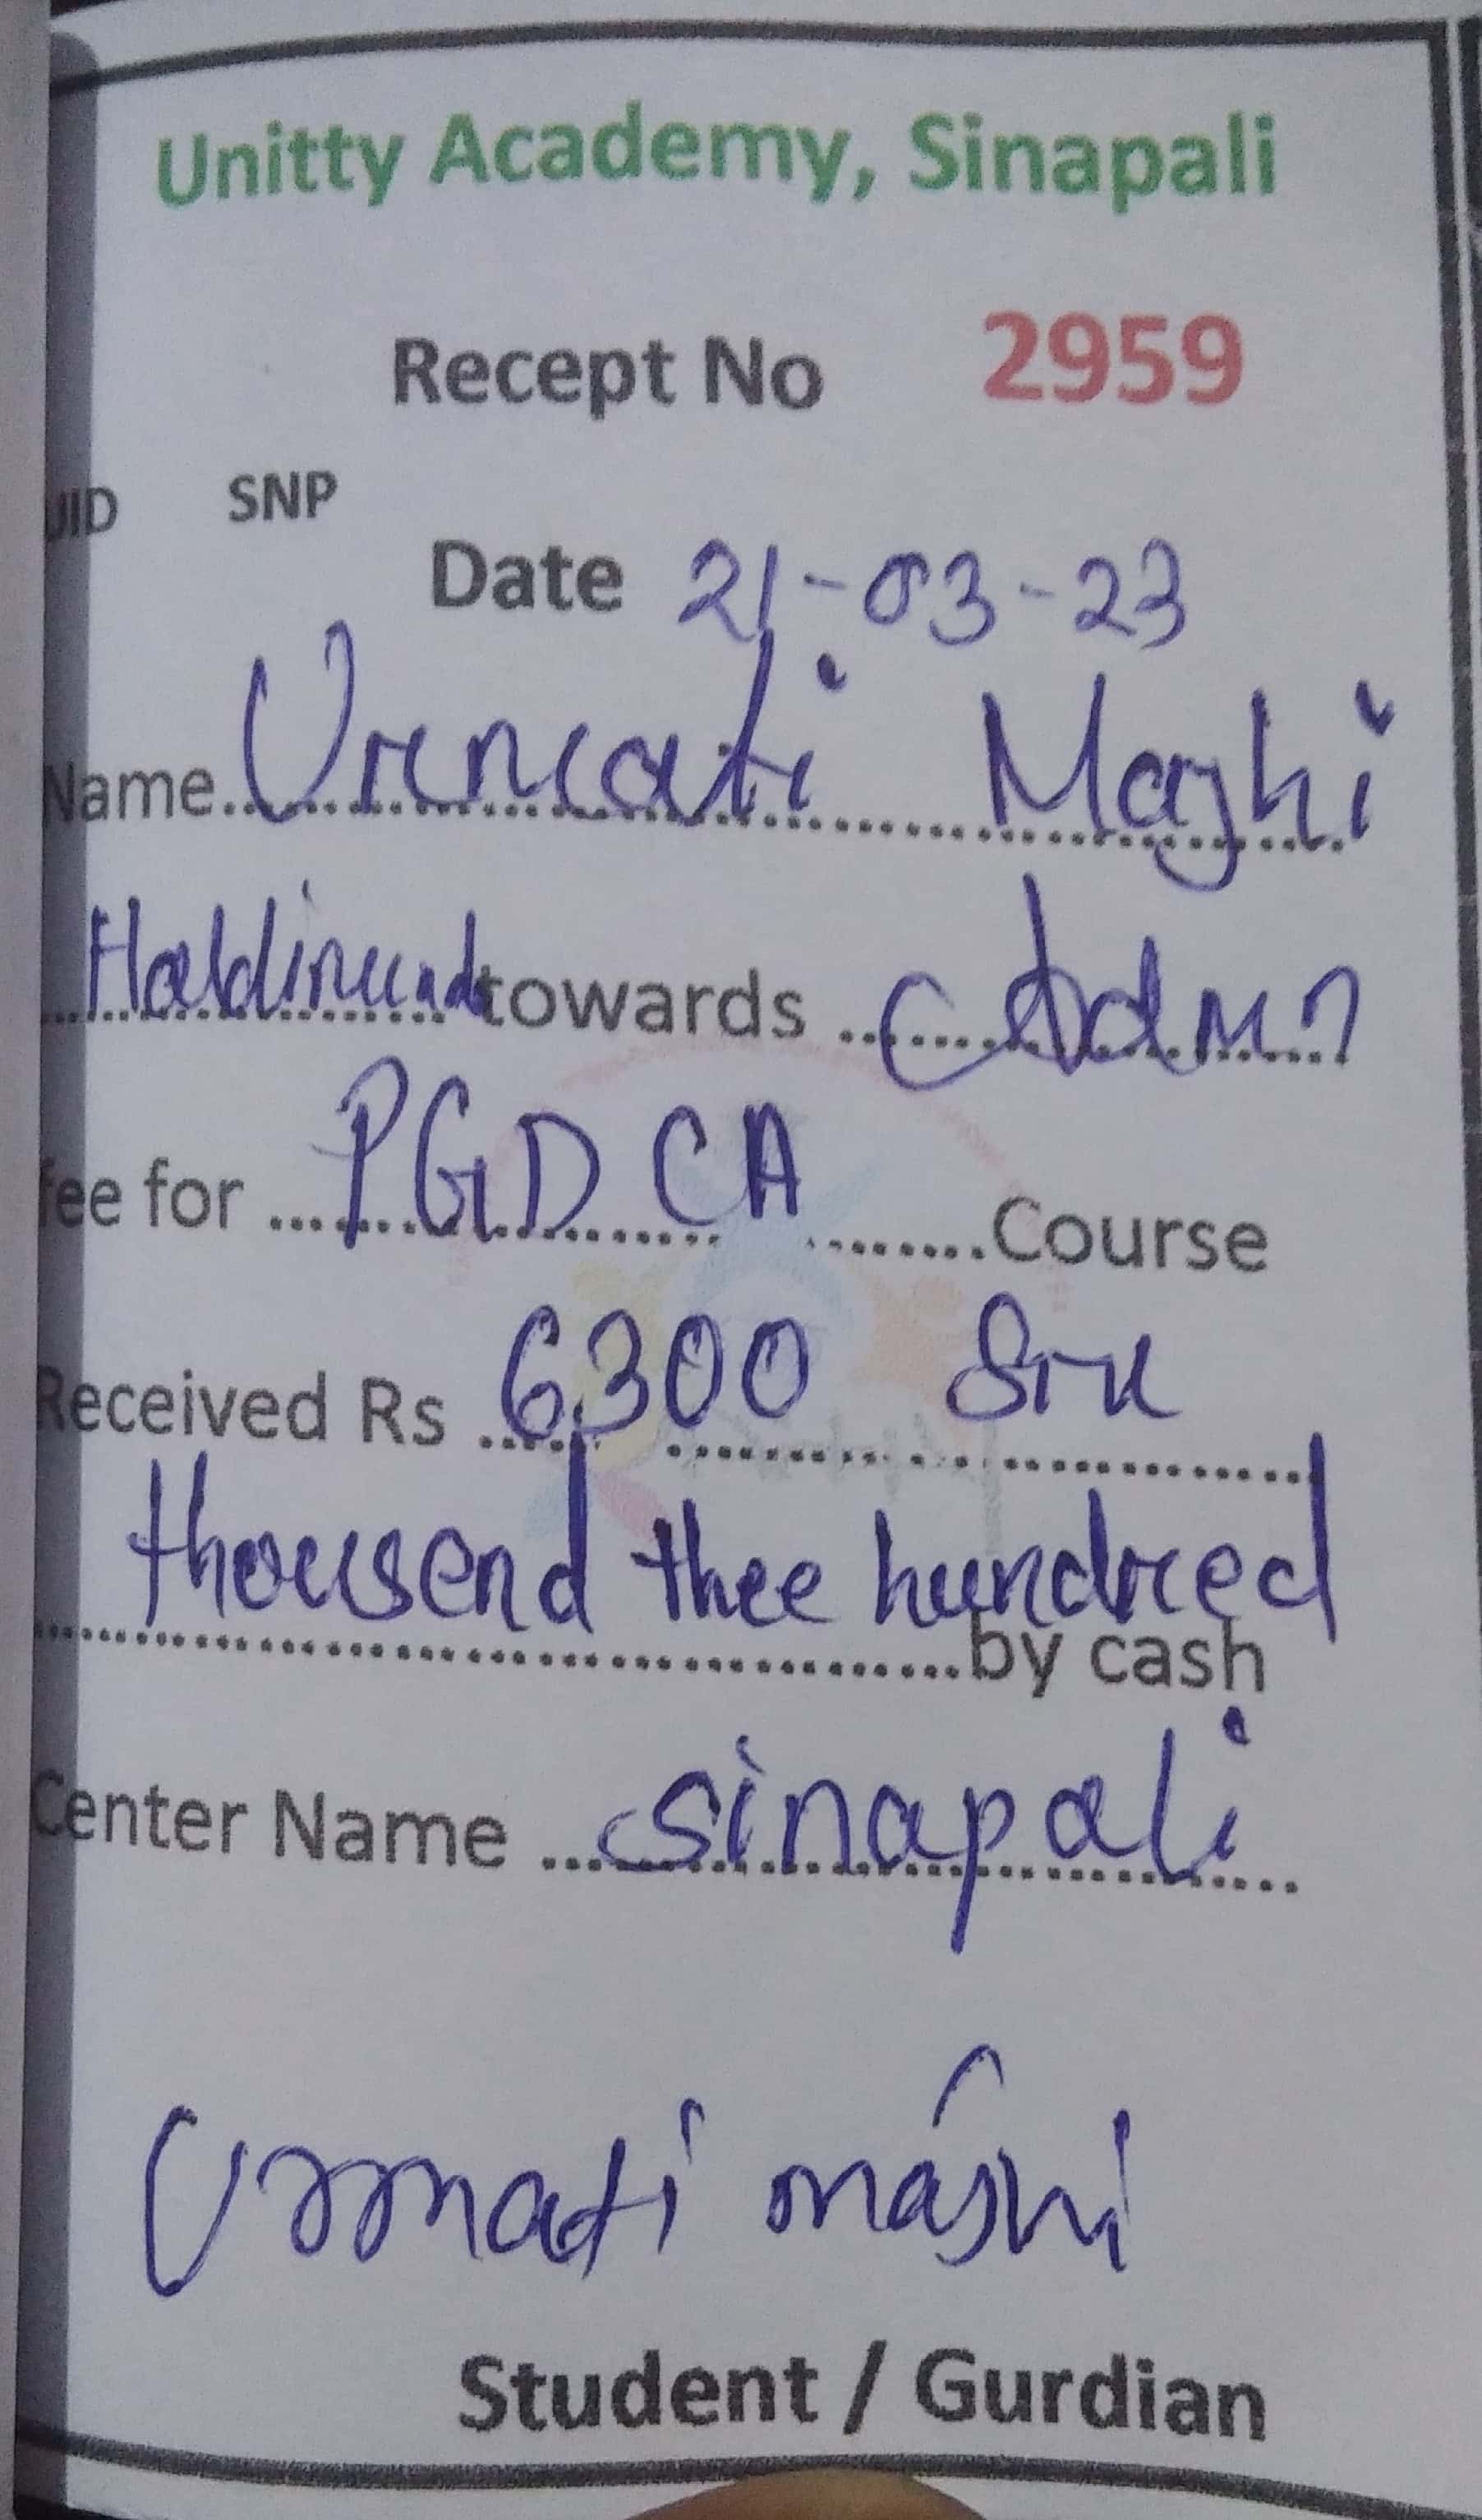 Unitty Academy, Sinapali
Recept No 2959
UID SNP
Date 21-03-23
Name.......... Majhi
towards ....Admn
fee for ....PGDCA........Course
Received Rs ....6300 Six
thousend thee hundred
..........by cash
Center Name ....Sinapali....
Urmati majhi
Student / Gurdian